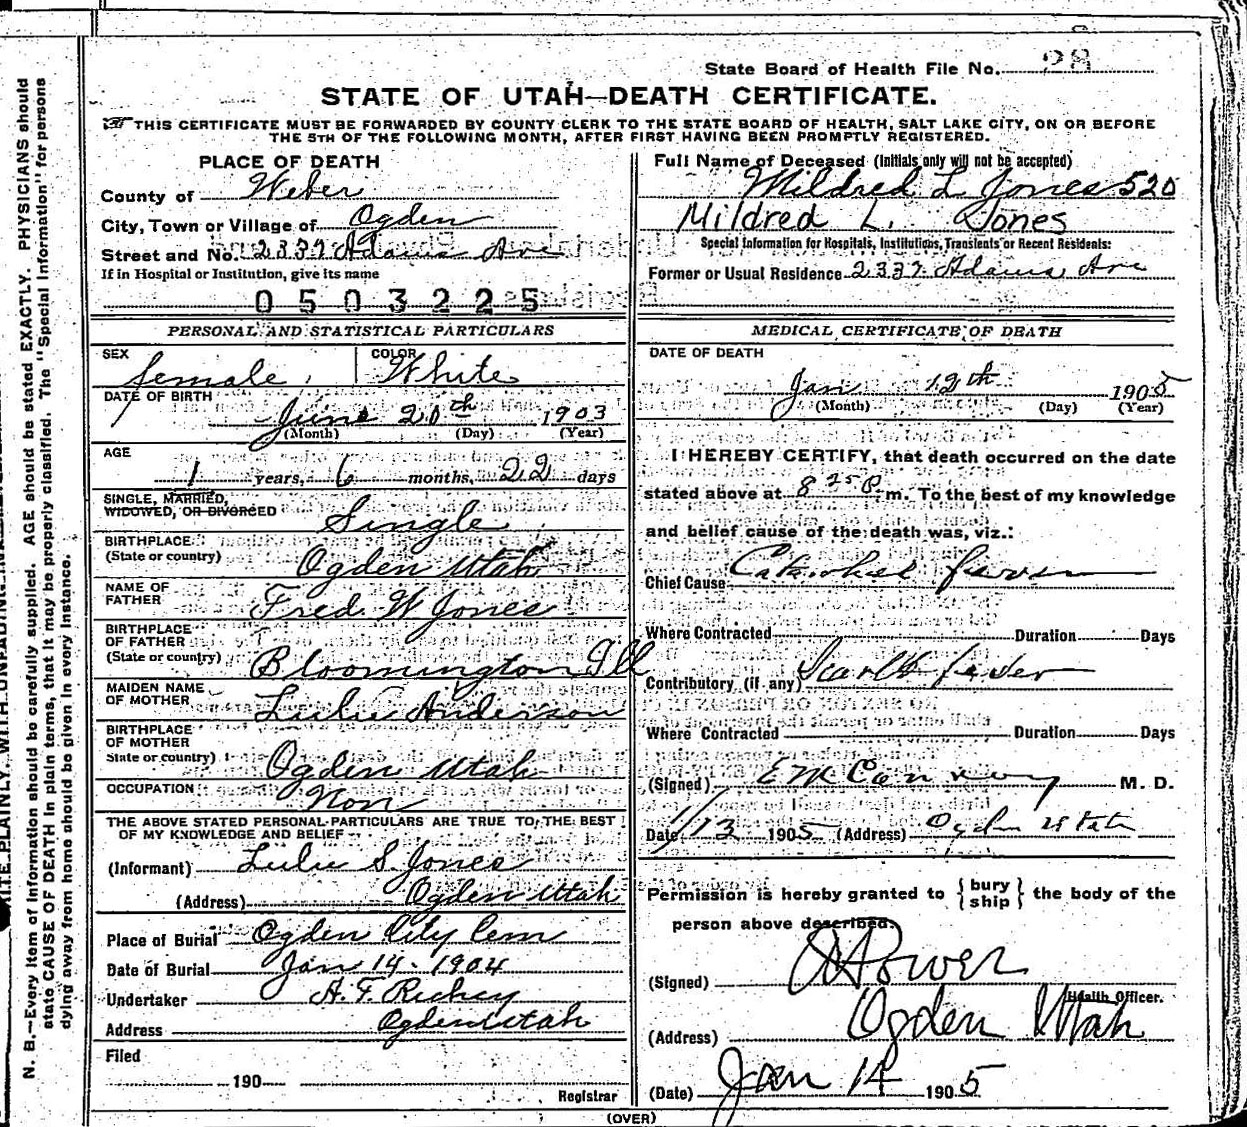 State Board of Health File No. 28
STATE OF UTAH—DEATH CERTIFICATE.
THIS CERTIFICATE MUST BE FORWARDED BY COUNTY CLERK TO THE STATE BOARD OF HEALTH, SALT LAKE CITY, ON OR BEFORE
THE 5TH OF THE FOLLOWING MONTH, AFTER FIRST HAVING BEEN PROMPTLY REGISTERED.
PLACE OF DEATH
County of Weber
City, Town or Village of Ogden
Street and No. 2337 Adams Ave
If in Hospital or Institution, give its name
0503225
Full Name of Deceased (Initials only will not be accepted)
Mildred L Jones 520
Mildred L. Jones
Special Information for Hospitals, Institutions, Transients or Recent Residents:
Former or Usual Residence 2337 Adams Ave
PERSONAL AND STATISTICAL PARTICULARS
SEX female
COLOR White
DATE OF BIRTH
June 20th 1903
(Month) (Day) (Year)
AGE
1 years, 6 months, 22 days
SINGLE, MARRIED,
WIDOWED, OR DIVORCED Single
BIRTHPLACE
(State or country) Ogden Utah
NAME OF
FATHER Fred W Jones
BIRTHPLACE
OF FATHER
(State or country) Bloomington Ill
MAIDEN NAME
OF MOTHER Lulu Anderson
BIRTHPLACE
OF MOTHER
State or country) Ogden Utah
OCCUPATION Non
THE ABOVE STATED PERSONAL PARTICULARS ARE TRUE TO THE BEST
OF MY KNOWLEDGE AND BELIEF
(Informant) Lulu S. Jones
(Address) Ogden Utah
Place of Burial Ogden City Cem
Date of Burial Jan 14 - 1904
Undertaker A. F. Richey
Address Ogden Utah
Filed
190
Registrar
MEDICAL CERTIFICATE OF DEATH
DATE OF DEATH
Jan 12th 1905
(Month) (Day) (Year)
I HEREBY CERTIFY, that death occurred on the date
stated above at 8 25 P m. To the best of my knowledge
and belief cause of the death was, viz.:
Chief Cause
Where Contracted Duration Days
Contributory (if any) Scarlet fever
Where Contracted Duration Days
(Signed) M. D.
Date 1/13 1905 (Address) Ogden Utah
Permission is hereby granted to { bury ship } the body of the
person above described.
(Signed)
Health Officer.
(Address) Ogden Utah
(Date) Jan 14 1905
(OVER)
N. B.—Every item of information should be carefully supplied. AGE should be stated EXACTLY. PHYSICIANS should
state CAUSE OF DEATH in plain terms, that it may be properly classified. The "Special Information" for persons
dying away from home should be given in every instance.